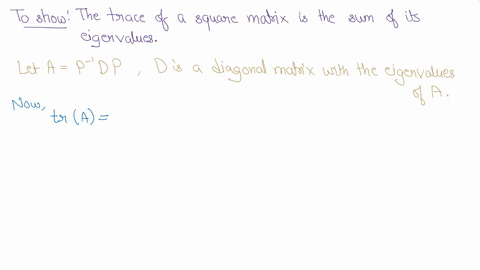 To show: The trace of a square matrix is the sum of its
eigenvalues.
Let A = P⁻¹DP , D is a diagonal matrix with the eigenvalues
of A.
Now,
tr (A) =